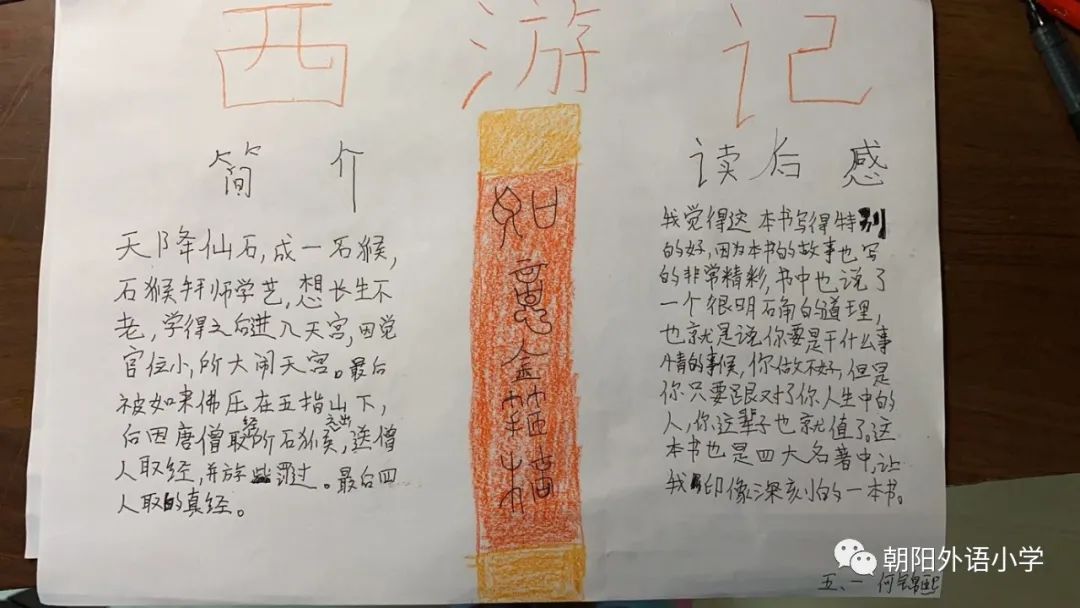 西游记
简介
天降仙石,成一石猴,
石猴拜师学艺,想长生不
老,学得之后进入天宫,因觉
官位小,所大闹天宫。最后
被如来佛压在五指山下,
后因唐僧取经所石猴,送僧
人取经,并放罪过。最后四
人取的真经。
如意金箍棒
读后感
我觉得这本书写得特别
的好,因为本书的故事也写
的非常精彩,书中也说了
一个很明确的道理,
也就是说你要是干什么事
情的事候,你做不好,但是
你只要跟对了你人生中的
人,你这辈子也就值了。这
本书也是四大名著中,让
我印像深刻的一本书。
五、一 何锦熙
朝阳外语小学